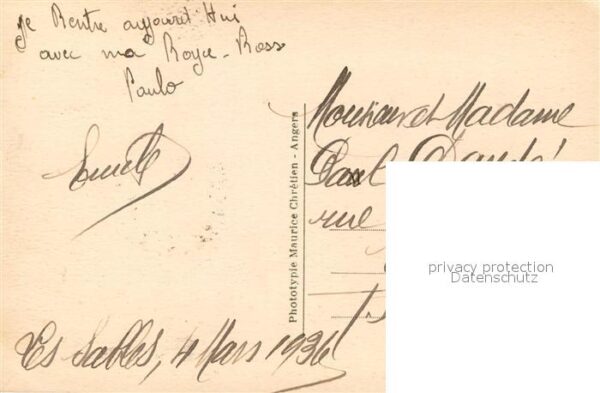 Je Rentre aujourd Hui
avec ma Royce-Ross
Paulo
Emile
Les Sables, 4 Mars 1936
Phototypie Maurice Chrétien - Angers
Monsieur et Madame
Paul
rue
privacy protection
Datenschutz